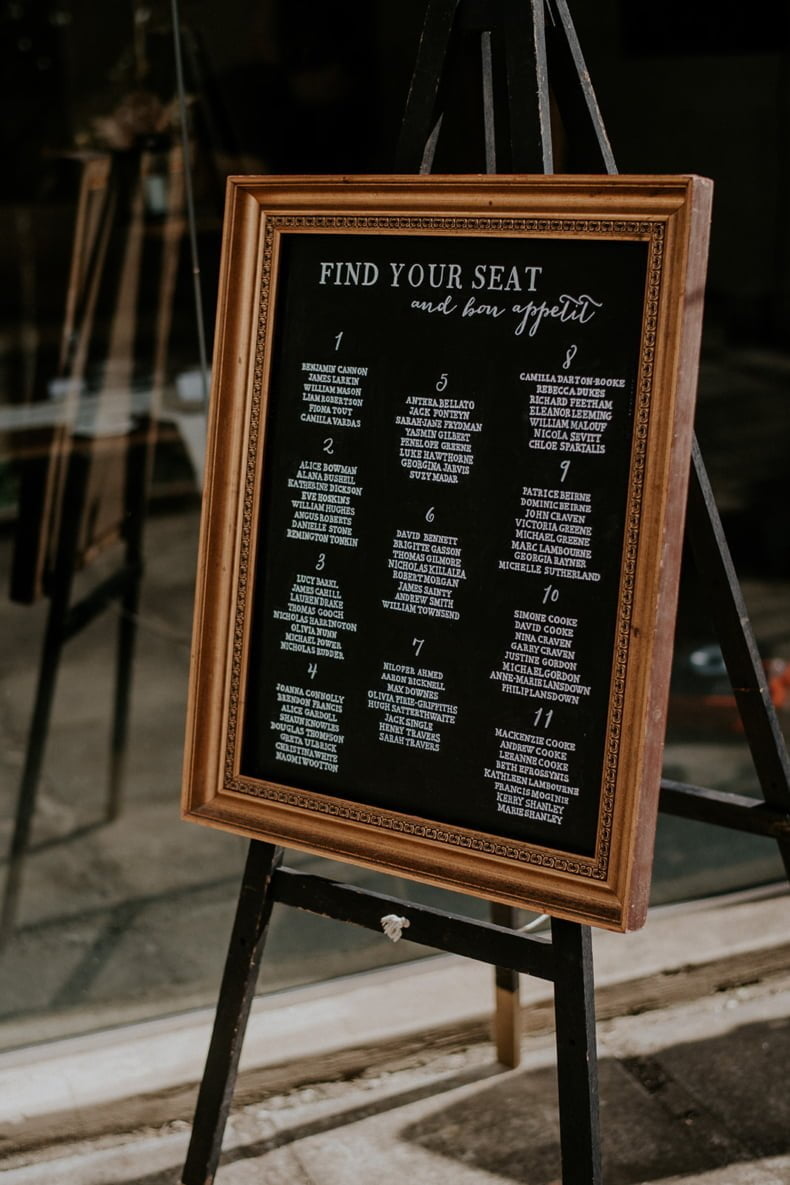 FIND YOUR SEAT
and bon appetit
1
BENJAMIN CANNON
JAMES LARKIN
WILLIAM MASON
LIAM ROBERTSON
FIONA TOUT
CAMILLA VARDAS
2
ALICE BOWMAN
ALANA BUSHELL
KATHERINE DICKSON
EVE HOSKINS
WILLIAM HUGHES
ANGUS ROBERTS
DANIELLE STONE
REMINGTON TONKIN
3
LUCY
JAMES CAHILL
LAUREN DRAKE
THOMAS GOOCH
NICHOLAS HARRINGTON
OLIVIA NUNN
MICHAEL POWER
NICHOLAS RUDDER
4
JOANNA CONNOLLY
BRENDON FRANCIS
ALICE GARDOLL
SHAUN KNOWLES
DOUGLAS THOMPSON
GRETA ULBRICK
CHRISTINA WHITE
NAOMI WOOTTON
5
ANTHEA BELLATO
JACK FONTEYN
SARAH-JANE FRYDMAN
YASMIN GILBERT
PENELOPE GREENE
LUKE HAWTHORNE
GEORGINA JARVIS
SUZY MADAR
6
DAVID BENNETT
BRIGITTE GASSON
THOMAS GILMORE
NICHOLAS KILLALEA
ROBERT MORGAN
JAMES SAINTY
ANDREW SMITH
WILLIAM TOWNSEND
7
NILOFER AHMED
AARON BICKNELL
MAX DOWNES
OLIVIA PIRIE-GRIFFITHS
HUGH SATTERTHWAITE
JACK SINGLE
HENRY TRAVERS
SARAH TRAVERS
8
CAMILLA DARTON-ROOKE
REBECCA DUKES
RICHARD FEETHAM
ELEANOR LEEMING
WILLIAM MALOUF
NICOLA SEVITT
CHLOE SPARTALIS
9
PATRICE BEIRNE
DOMINIC BEIRNE
JOHN CRAVEN
VICTORIA GREENE
MICHAEL GREENE
MARC LAMBOURNE
GEORGIA RAYNER
MICHELLE SUTHERLAND
10
SIMONE COOKE
DAVID COOKE
NINA CRAVEN
GARRY CRAVEN
JUSTINE GORDON
MICHAEL GORDON
ANNE-MARIE LANSDOWN
PHILIP LANSDOWN
11
MACKENZIE COOKE
ANDREW COOKE
LEEANNE COOKE
BETH EFROSSYNIS
KATHLEEN LAMBOURNE
FRANCIS MOGINIE
KERRY SHANLEY
MARIE SHANLEY